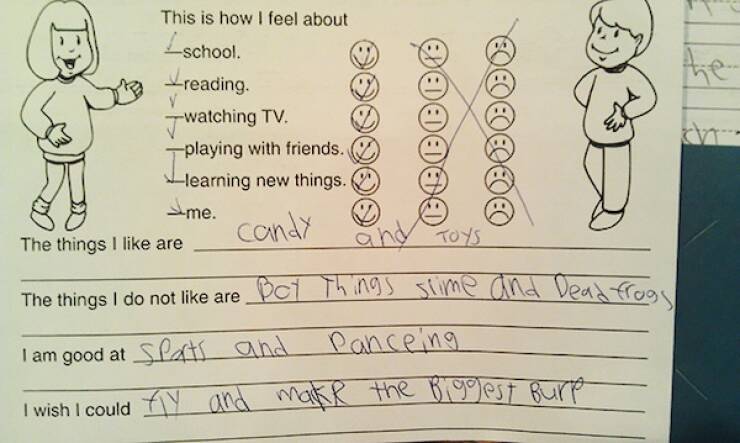 This is how I feel about
school.
reading.
watching TV.
playing with friends.
learning new things.
me.
The things I like are candy and Toys
The things I do not like are Boy Things slime and Dead frogs
I am good at sparts and Danceing
I wish I could fly and make the Biggest Burp
he